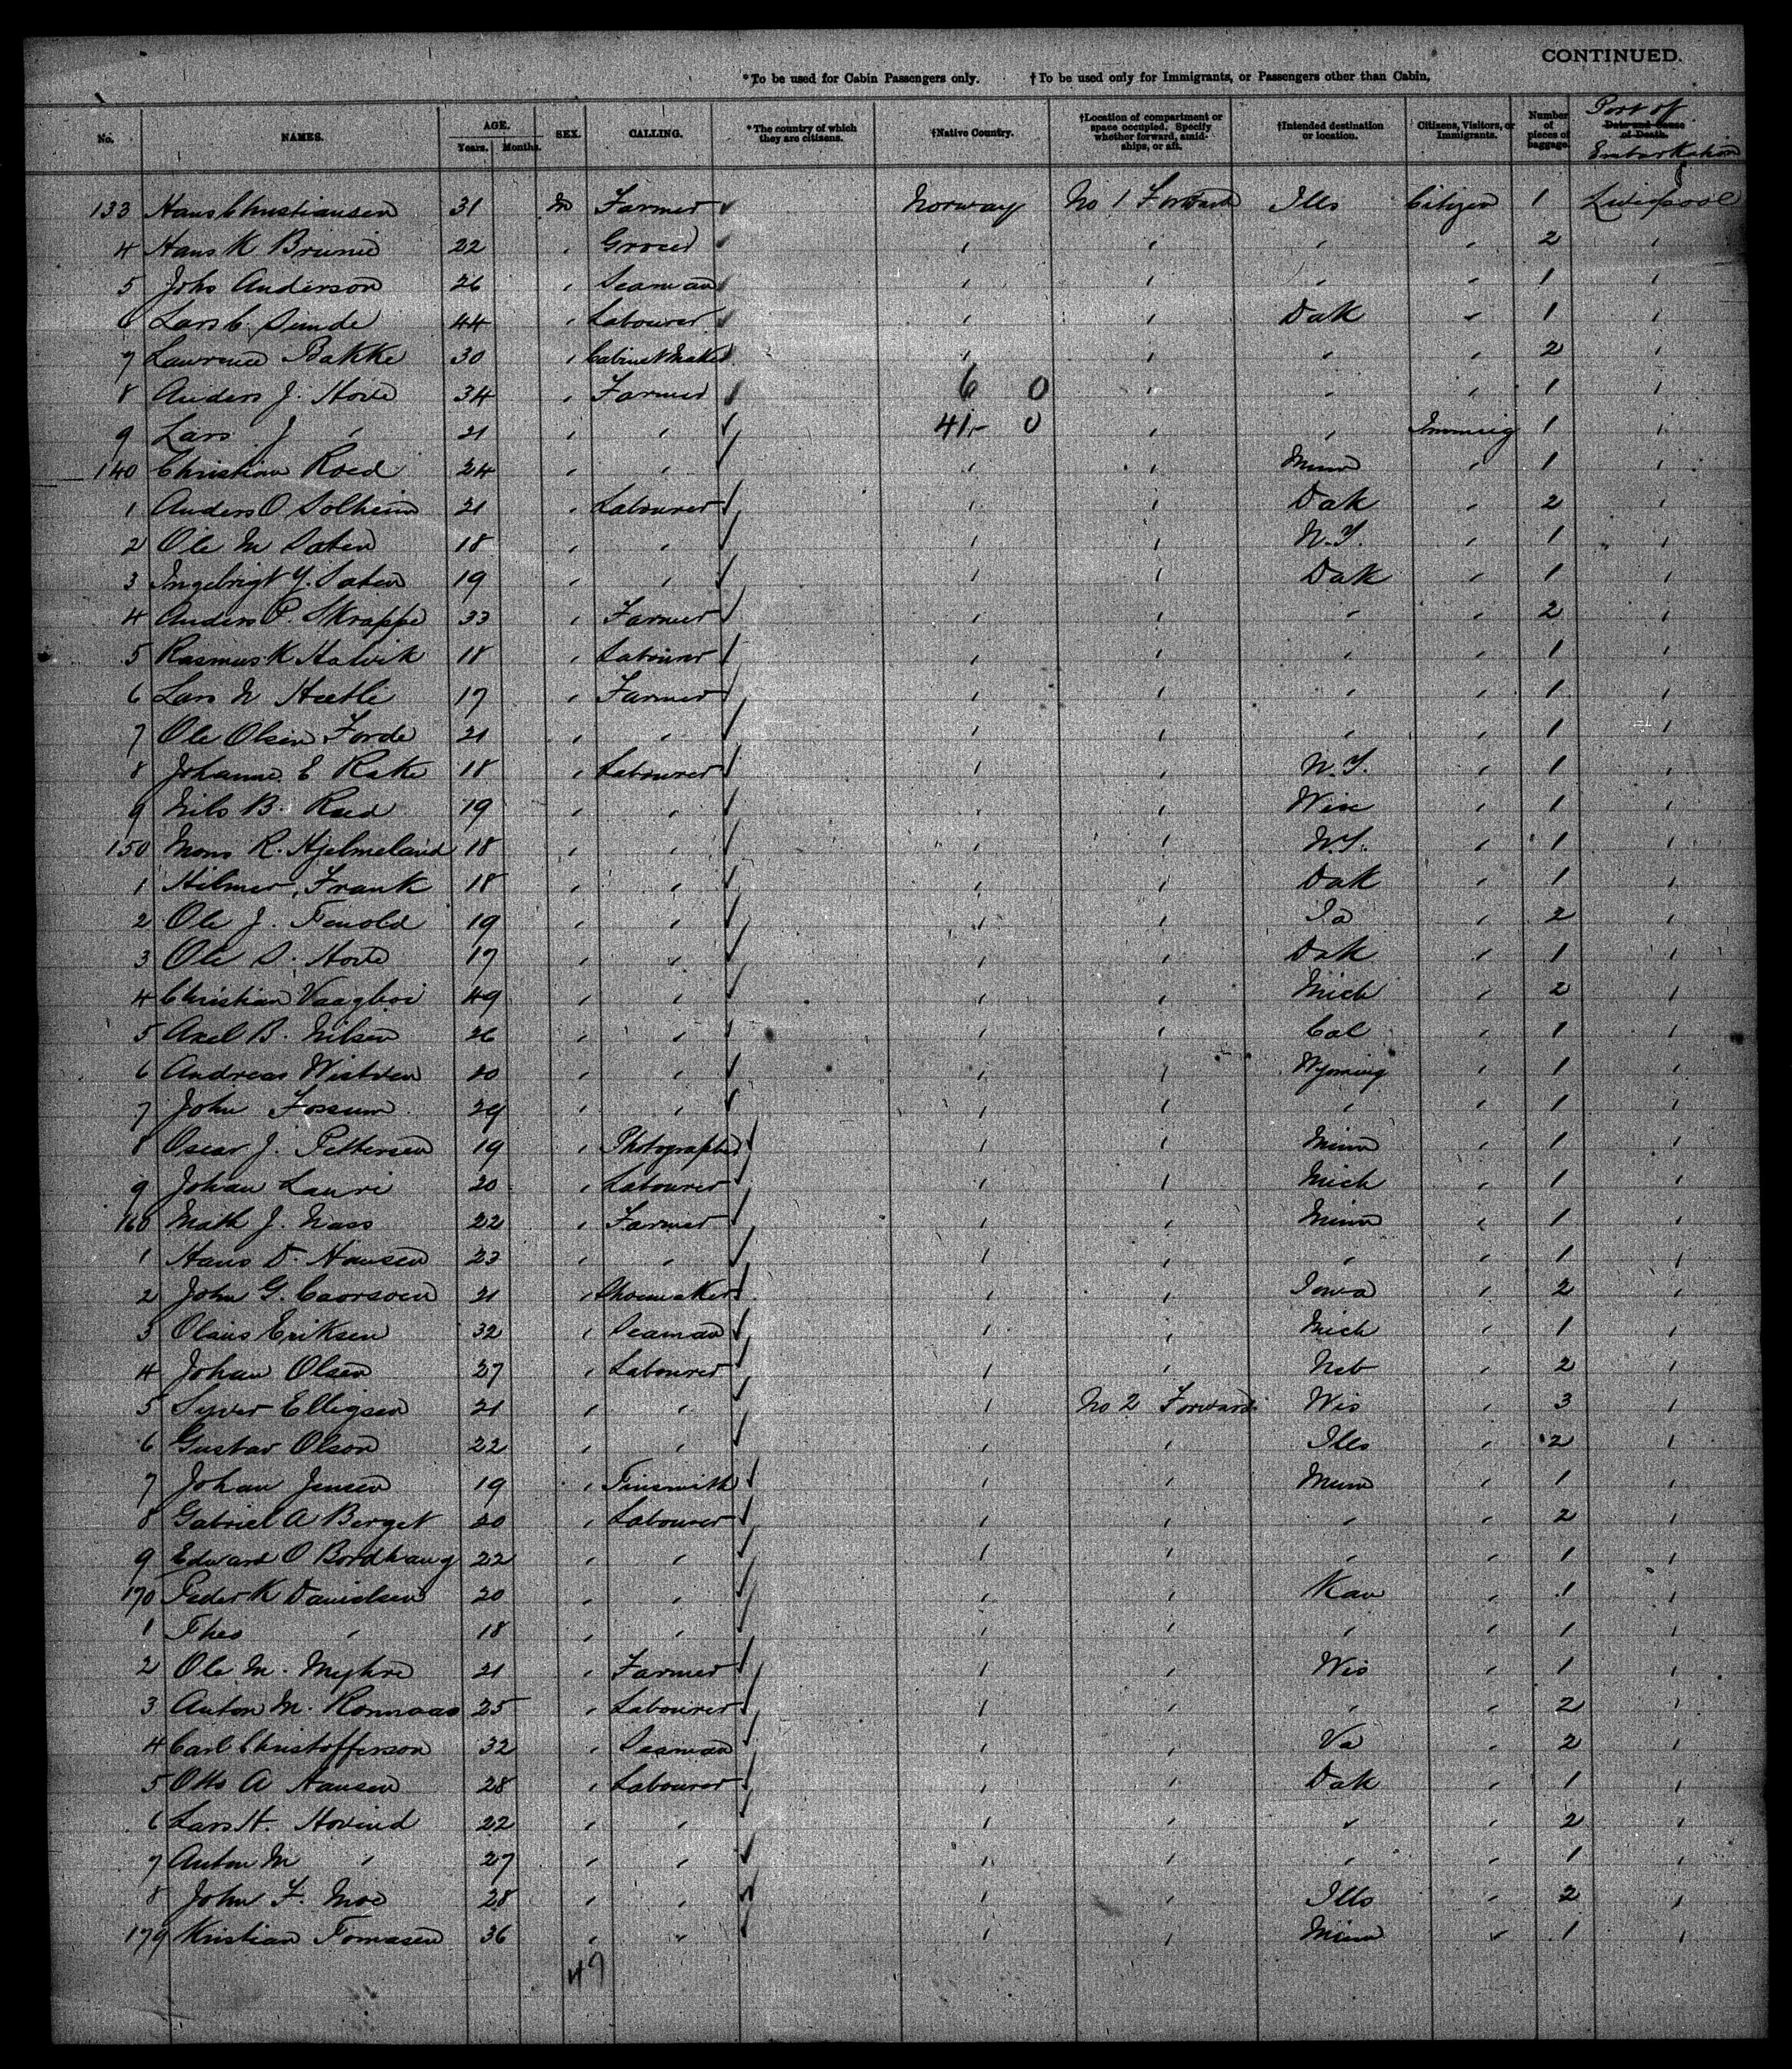 CONTINUED.
*To be used for Cabin Passengers only. †To be used only for Immigrants, or Passengers other than Cabin,
No. NAMES. AGE. Years. Months. SEX. CALLING. *The country of which they are citizens. †Native Country. †Location of compartment or space occupied. Specify whether forward, amidships, or aft. †Intended destination or location. Citizens, Visitors, or Immigrants. Number of pieces of baggage. Port of Embarkation
Date and Cause of Death.
133 Hans Christiansen 31 m Farmer Norway No 1 Forward Ills Citizen 1 Liverpool
4 Hans K 22 " Grocer " " " " 2 "
5 Johs Anderson 26 " Seaman " " " " 1 "
6 Lars C. Sunde 44 " Labourer " " Dak " 1 "
7 Lawrence Bakke 30 " Cabinet Maker " " " " 2 "
8 Anders J. Hove 34 " Farmer 6 0 " " " 1 "
9 Lars J " 21 " " 41- 0 " " Immig 1 "
140 Christian Roed 24 " " " " Minn " 1 "
1 Anders O Solheim 21 " Labourer " " Dak " 2 "
2 Ole M 18 " " " " N.Y. " 1 "
3 Ingebrigt Y. 19 " " " " Dak " 1 "
4 Anders P. Skrappe 33 " Farmer " " " " 2 "
5 Rasmus K Hatvik 18 " Labourer " " " " 1 "
6 Lars N 17 " Farmer " " " " 1 "
7 Ole Olsen Forde 21 " " " " " " 1 "
8 Johanne E Rake 18 " Labourer " " N.Y. " 1 "
9 Nils B. Roed 19 " " " " Wisc " 1 "
150 Mons R. Hjelmeland 18 " " " " N.Y. " 1 "
1 Hilmer Frank 18 " " " " Dak " 1 "
2 Ole J. Fenold 19 " " " " Ia " 2 "
3 Ole S. Hove 17 " " " " Dak " 1 "
4 Christian Vaagboi 49 " " " " Mich " 2 "
5 Axel B. Nilsen 26 " " " " Cal " 1 "
6 Andreas Wistven 20 " " " " Wyoming " 1 "
7 John Fossum 29 " " " " " " 1 "
8 Oscar J. Pettersen 19 " Photographer " " Minn " 1 "
9 Johan Lauri 20 " Labourer " " Mich " 1 "
160 Math J. Nass 22 " Farmer " " Minn " 1 "
1 Hans D. Hansen 23 " " " " " " 1 "
2 John G. 21 " Shoemaker " " Iowa " 2 "
3 Olaus Eriksen 32 " Seaman " " Mich " 1 "
4 Johan Olsen 27 " Labourer " " Neb " 2 "
5 Syver Elligsen 21 " " " No 2 Forward Wis " 3 "
6 Gustav Olson 22 " " " " Ills " 2 "
7 Johan Jensen 19 " Tinsmith " " Minn " 1 "
8 Gabriel A Berget 20 " Labourer " " " " 2 "
9 Edward O Bordhaug 22 " " " " " " 1 "
170 Peder K Danielsen 20 " " " " Kan " 1 "
1 Theo " 18 " " " " " " 1 "
2 Ole M. Myhre 21 " Farmer " " Wis " 1 "
3 Anton M. Ronnaas 25 " Labourer " " " " 2 "
4 Carl Christofferson 32 " Seaman " " Va " 2 "
5 Otto A Hansen 28 " Labourer " " Dak " 1 "
6 Lars H. Hovind 22 " " " " " " 2 "
7 Anton M " 27 " " " " " " 1 "
8 John F. Moe 28 " " " " Ills " 2 "
179 Kristian Tomasen 36 " " " " Minn " 1 "
47